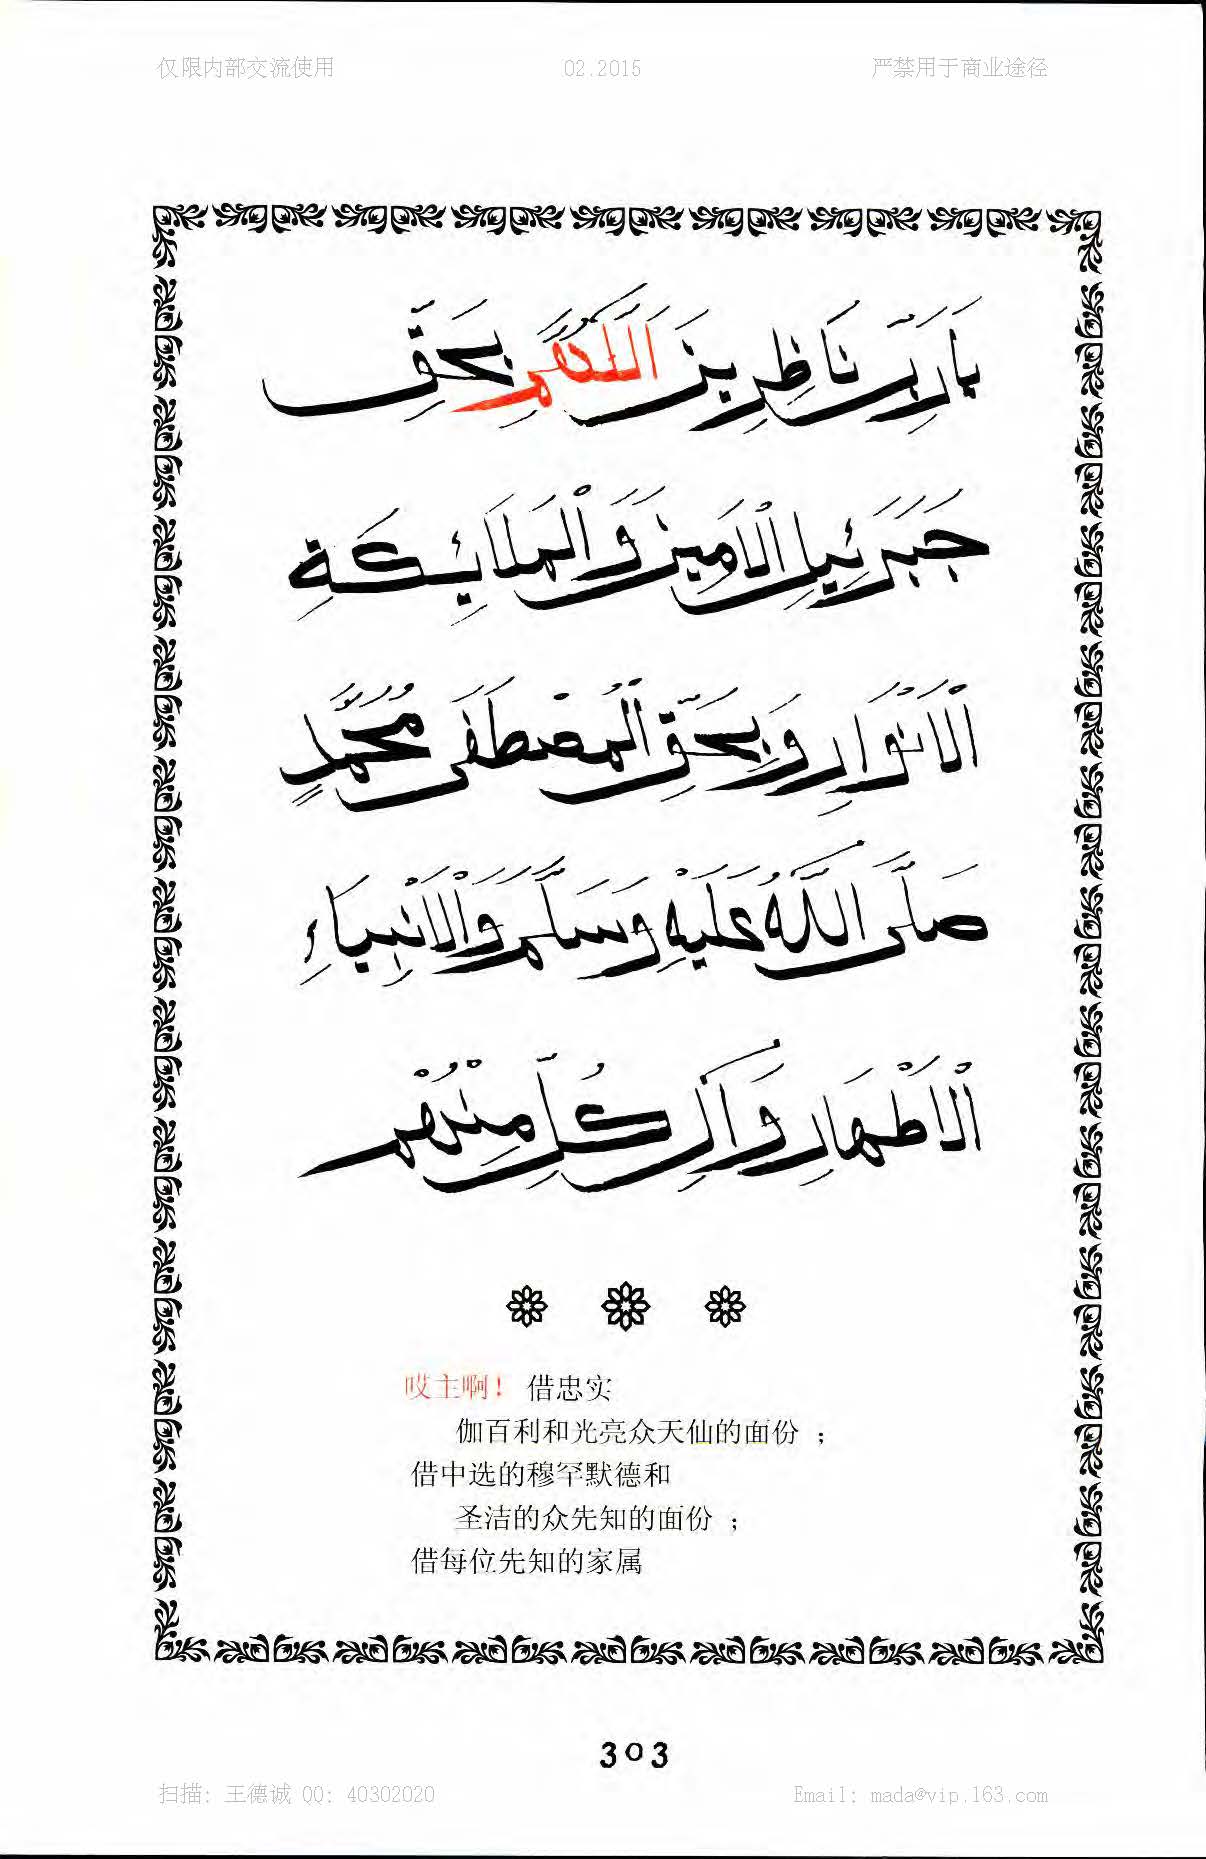 仅限内部交流使用 02.2015 严禁用于商业途径
يَارَبِّ نَاظِرِينَ اَللّٰهُمَّ بِحَقِّ
جَبَرَئِيلِ الْاَمِينِ وَالْمَلَائِكَةِ
الْاَنْوَارِ وَبِحَقِّ الْمُصْطَفَى مُحَمَّدٍ
صَلَّى اللّٰهُ عَلَيْهِ وَسَلَّمَ وَالْاَنْبِيَاءِ
الْاَطْهَارِ وَآلِ كُلٍّ مِنْهُمْ
哎主啊！借忠实
伽百利和光亮众天仙的面份；
借中选的穆罕默德和
圣洁的众先知的面份；
借每位先知的家属
303
扫描: 王德诚 QQ: 40302020 Email: mada@vip.163.com